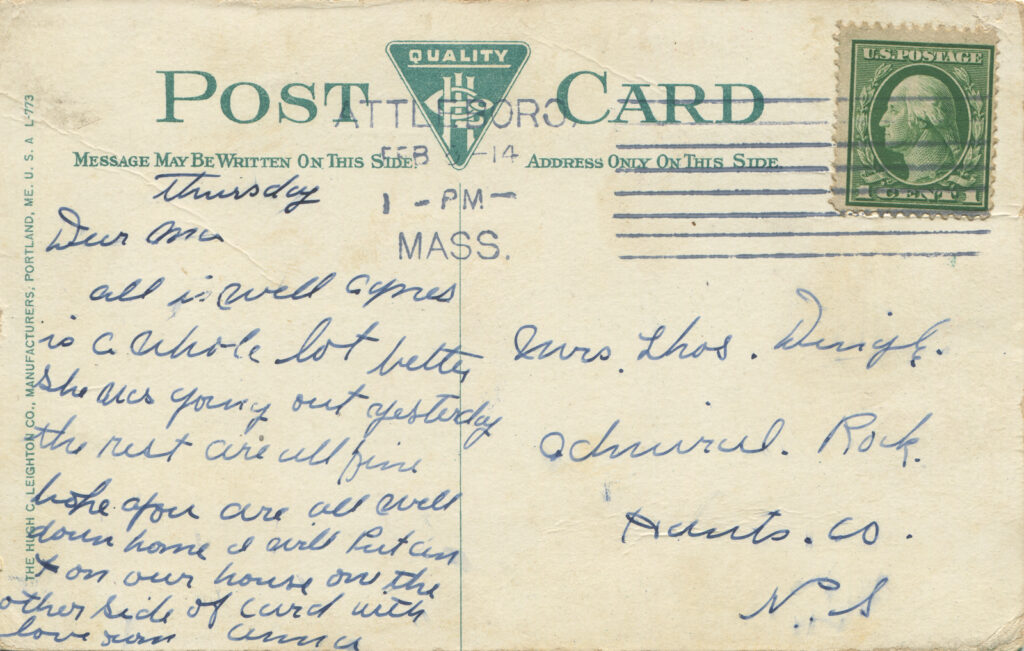 THE HUGH C. LEIGHTON CO., MANUFACTURERS, PORTLAND, ME. U. S. A. L-773
QUALITY
POST CARD
MESSAGE MAY BE WRITTEN ON THIS SIDE.
ADDRESS ONLY ON THIS SIDE.
ATTLEBORO,
FEB -14
1 - PM -
MASS.
U.S. POSTAGE
1 CENT 1
Thursday
Dear Ma
all is well agnes
is a whole lot better
she was going out yesterday
the rest are all fine
hope you are all well
down home I will Put an
x on our house on the
other side of card with
love from anna
Mrs. Thos.
Admiral. Rock.
Hants. Co.
N.S